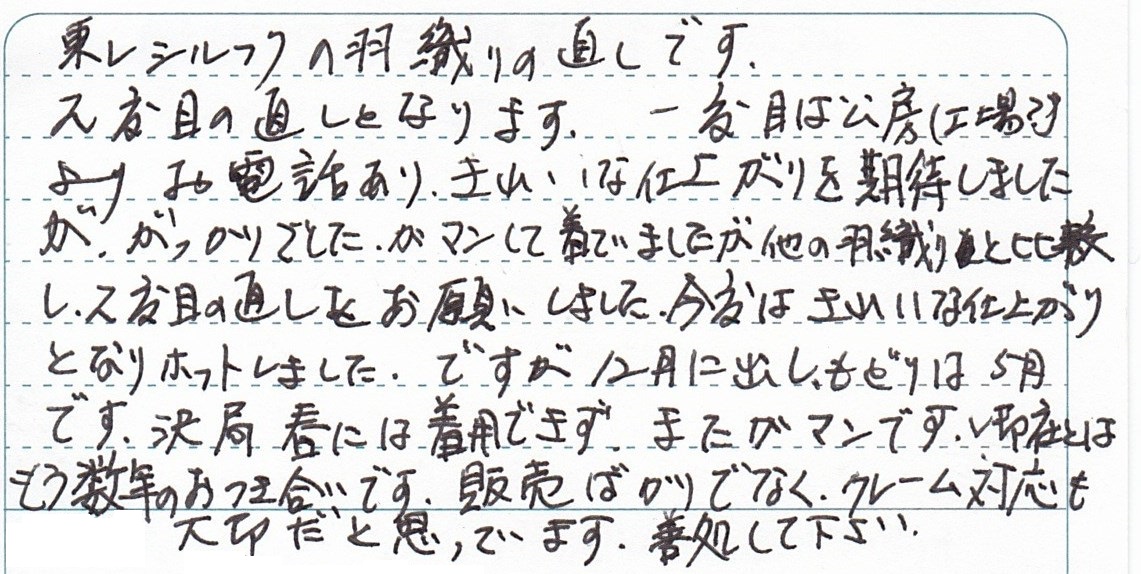 東レシルックの羽織りの直しです.
2度目の直しとなります. 一度目は公房(工場?)
より お電話あり. きれいな仕上がりを期待しました
が. がっかりでした. ガマンして着ていましたが他の羽織りと比較
し. 2度目の直しをお願いしました. 今度はきれいな仕上がり
となりホットしました. ですが12月に出し、もどりは5月
です. 決局春には着用できず. またガマンです.
もう数年のおつき合いです. 販売ばかりでなく. クレーム対応も
大切だと思っています. 善処して下さい.